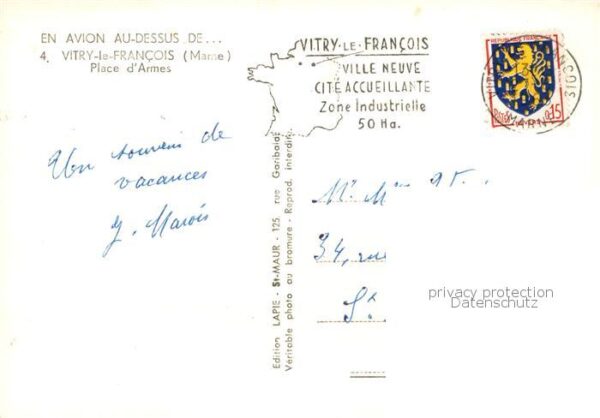 EN AVION AU-DESSUS DE...
4. VITRY-le-FRANÇOIS (Marne)
Place d'Armes
VITRY-LE-FRANÇOIS
VILLE NEUVE
CITÉ ACCUEILLANTE
Zone Industrielle
50 Ha.
0,15
MARNE
Un souvenir de
vacances
J. Marois
Edition LAPIE - St-MAUR - 125 rue Garibaldi
Véritable photo au bromure - Reprod. interdite
Mr. Mme
34, rue
St
privacy protection
Datenschutz